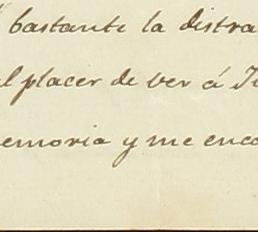 bastante la distra
el placer de ver á
emoria y me enco